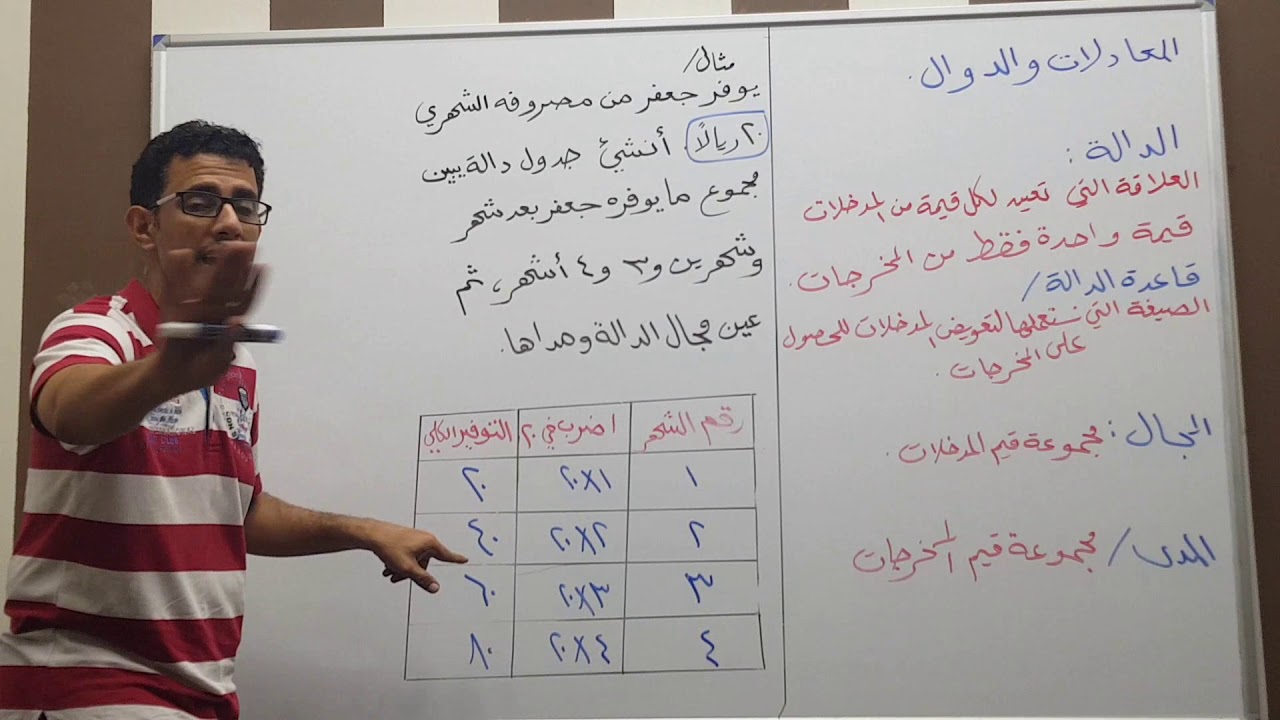 المعادلات والدوال.
الدالة:
العلاقة التي تعين لكل قيمة من المدخلات
قيمة واحدة فقط من المخرجات.
قاعدة الدالة/
الصيغة التي نستعملها لتعويض المدخلات للحصول
على المخرجات.
المجال: مجموعة قيم المدخلات.
المدى/ مجموعة قيم المخرجات
مثال/
يوفر جعفر من مصروفه الشهري
٢٠ ريالاً. أنشئ جدول دالة يبين
مجموع ما يوفره جعفر بعد شهر
وشهرين و٣ و٤ أشهر، ثم
عين مجال الدالة ومداها.
رقم الشهر اضرب في ٢٠ التوفير الكلي
١ ٢٠×١ ٢٠
٢ ٢٠×٢ ٤٠
٣ ٢٠×٣ ٦٠
٤ ٢٠×٤ ٨٠